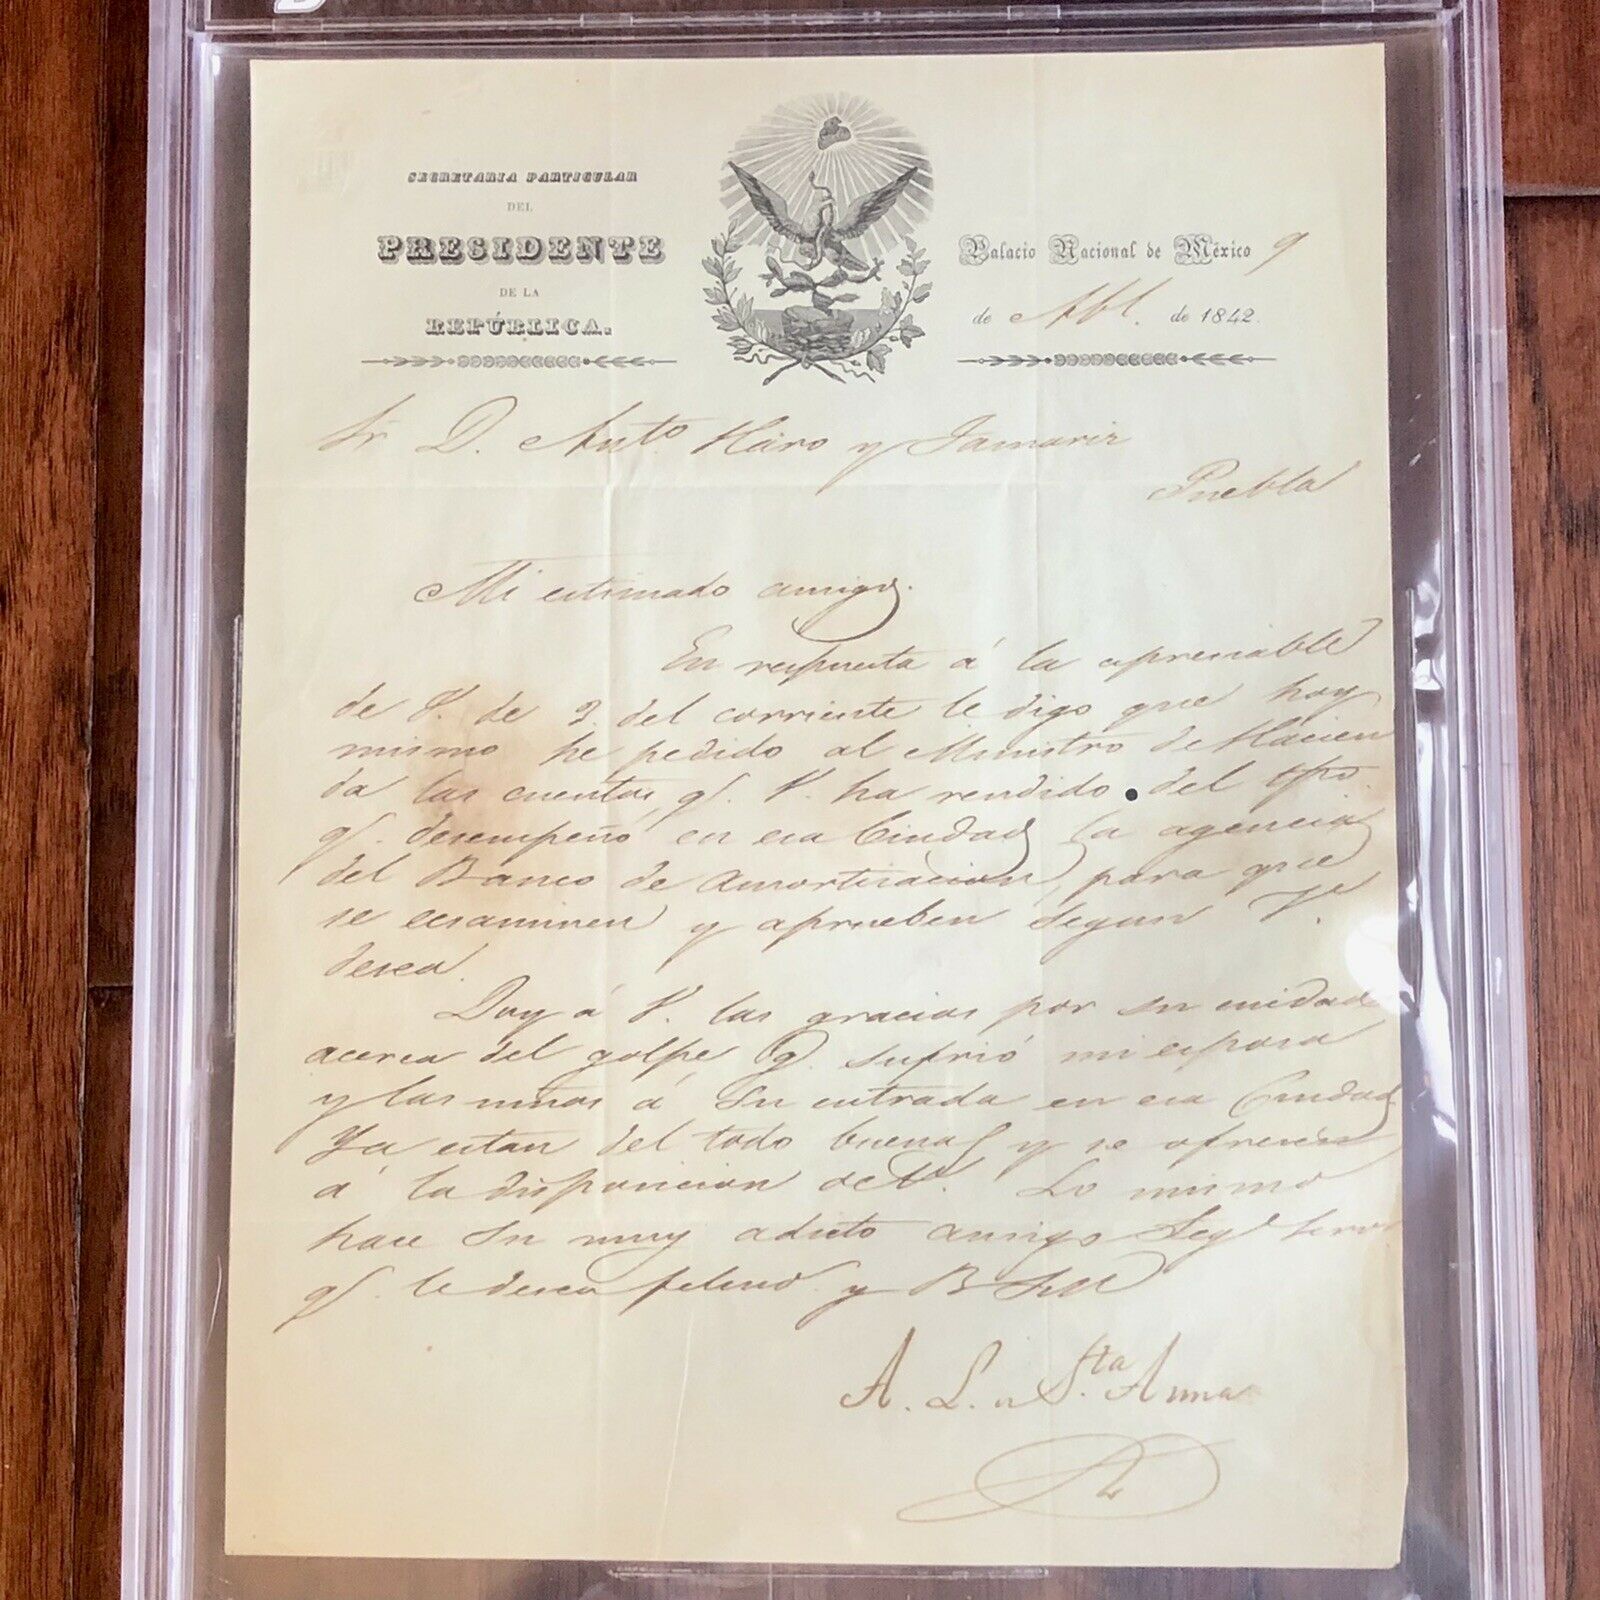 SECRETARIA PARTICULAR
DEL
PRESIDENTE
DE LA
REPÚBLICA.
Palacio Nacional de México 9
de Abl. de 1842.
Sr. D. Anto. Haro y Tamariz
Puebla
Mi estimado amigo.
En respuesta á la apreciable
de V. de 3. del corriente le digo que hoy
mismo he pedido al Ministro de Hacien
da las cuentas q. V. ha rendido del tpo.
q. desempeñó en esa Ciudad la agencia
del Banco de Amortisacion, para que
se ecsaminen y aprueben segun V.
desea.
Doy á V. las gracias por su cuidado
acerca del golpe q. sufrió mi esposa
y las niñas á su entrada en esa Ciudad
Ya estan del todo buenas y se ofrecen
á la disposicion de V. Lo mismo
hace su muy adicto amigo Sego. Servor
q. le desea felicid. y B S M
A. L. de Sta. Anna